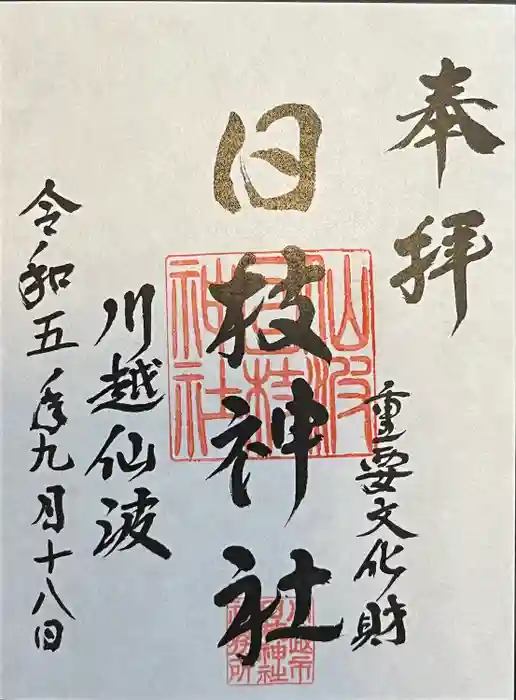 奉拝
重要文化財
日枝神社
川越仙波
令和五年九月十八日
仙波
日枝
神社
川越市
日枝神社
社務所